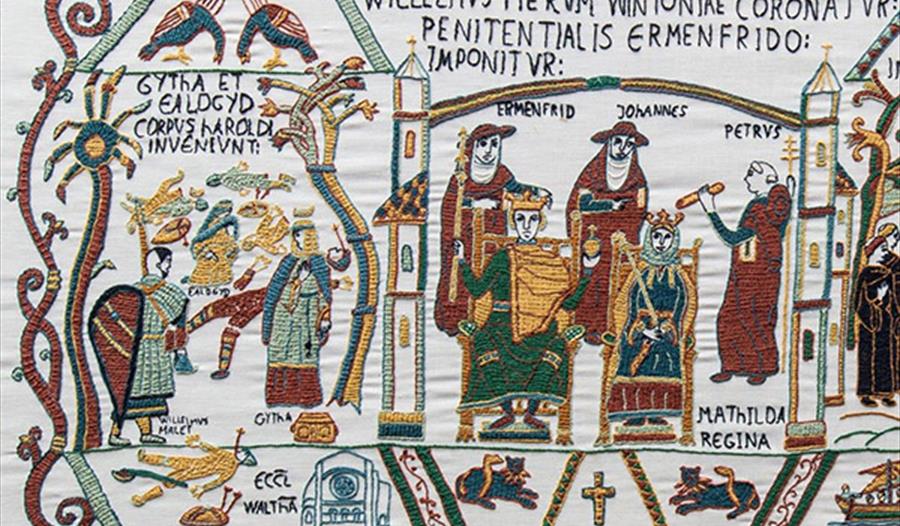 WILLELMUS ITERUM WINTONIAE CORONATVR:
PENITENTIALIS ERMENFRIDO:
IMPONITVR:
GYThA ET
EALDGYD
CORPVS hAROLDI
INVENIVNT:
ERMENFRID
JOhANNES
PETRVS
EALDGYD
WILLELMVS
MALET
GYThA
MAThILDA
REGINA
ECCL̄
WALThĀ